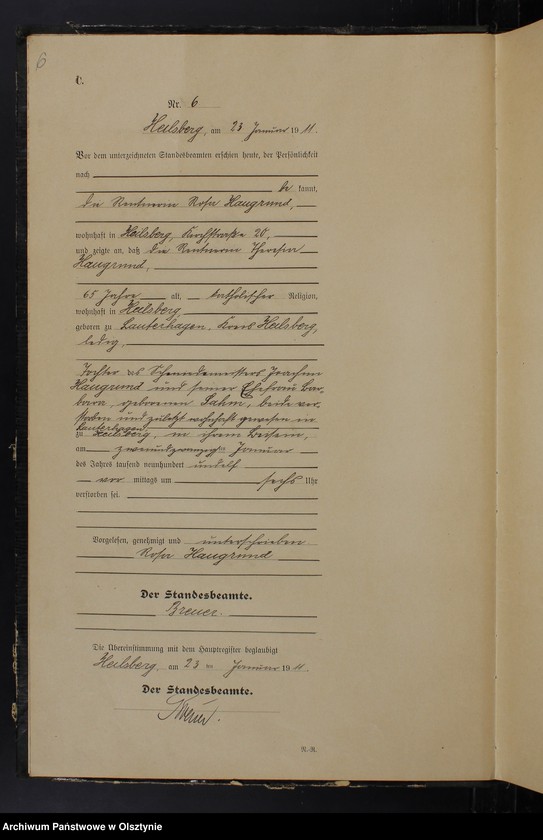 6
C.
Nr. 6
Heilsberg, am 23 Januar 1911.
Vor dem unterzeichneten Standesbeamten erschien heute, der Persönlichkeit
nach
be kannt,
die Rentnerin Rosa Haugrund,
wohnhaft in Heilsberg, Kirchstraße 20,
und zeigte an, daß die Rentnerin Theresia
Haugrund,
65 Jahre alt, katholischer Religion,
wohnhaft in Heilsberg,
geboren zu Lauterhagen, Kreis Heilsberg,
ledig,
Tochter des Joachim
Haugrund und seiner Ehefrau Bar-
bara, geborenen beide ver-
storben und zuletzt wohnhaft gewesen in
Lauterhagen
zu Heilsberg, in ihrem Beisein,
am zweiundzwanzigsten Januar
des Jahres tausend neunhundert undelf
vor mittags um sechs Uhr
verstorben sei.
Vorgelesen, genehmigt und unterschrieben
Rosa Haugrund
Der Standesbeamte.
Breuer.
Die Übereinstimmung mit dem Hauptregister beglaubigt
Heilsberg, am 23 Januar 1911.
Der Standesbeamte.
Breuer.
N.-R.
Archiwum Państwowe w Olsztynie